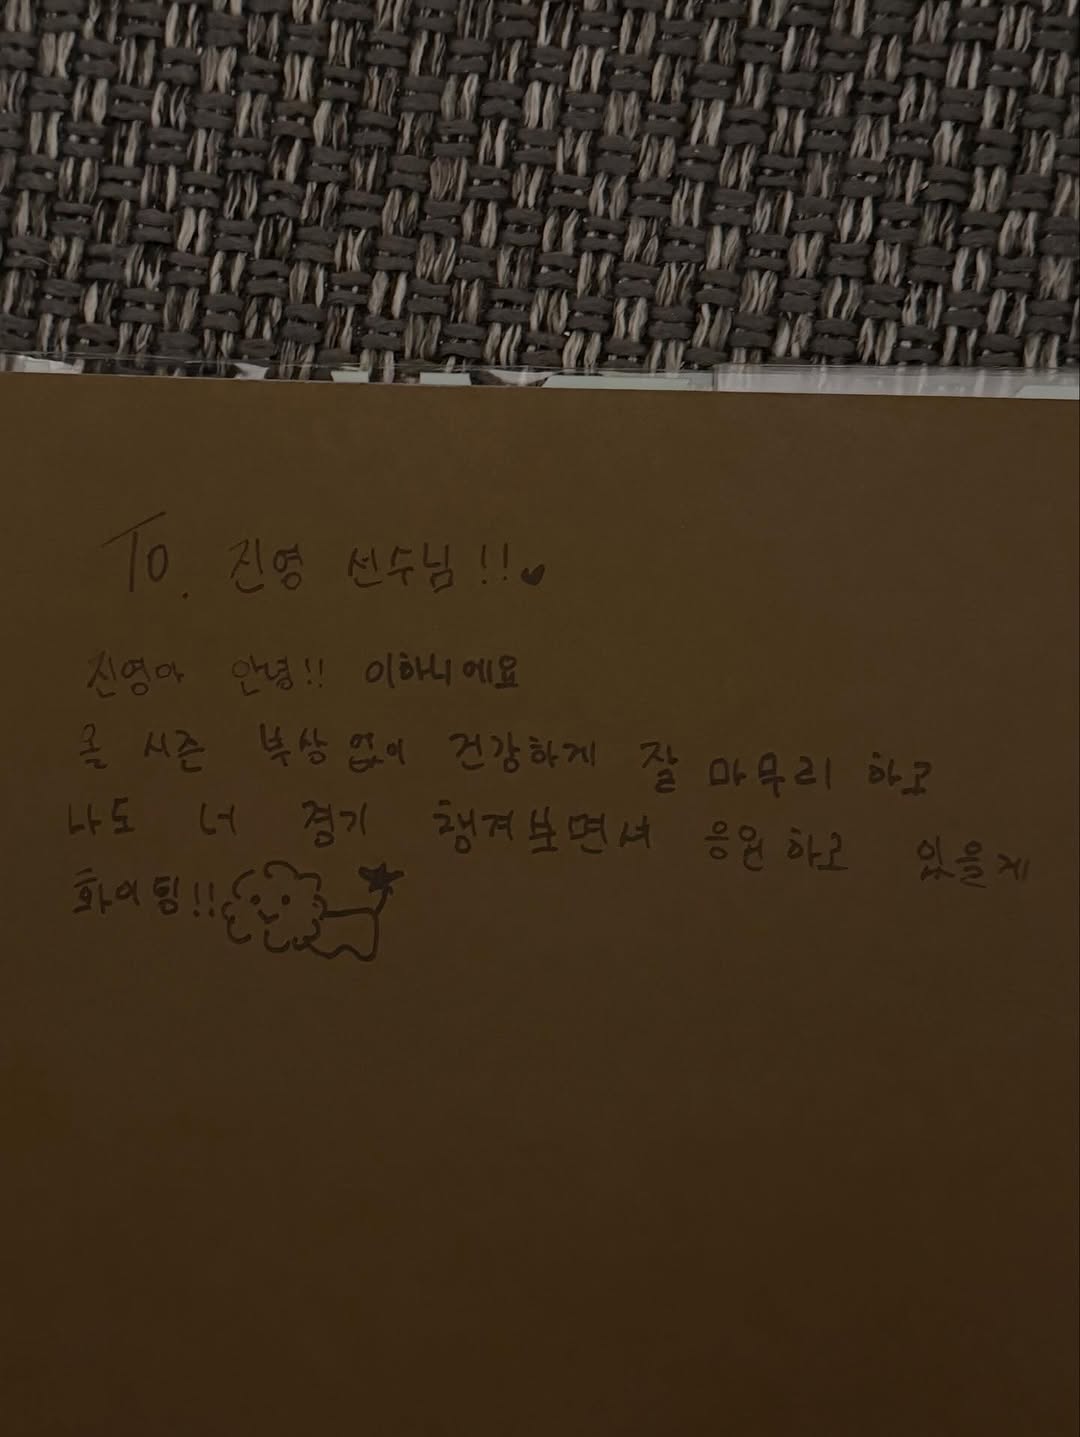 To. 진영 선수님!!♥
진영아 안녕!! 이하니에요
올 시즌 부상 없이 건강하게 잘 마무리 하고
나도 너 경기 챙겨보면서 응원 하고 있을게
화이팅!!